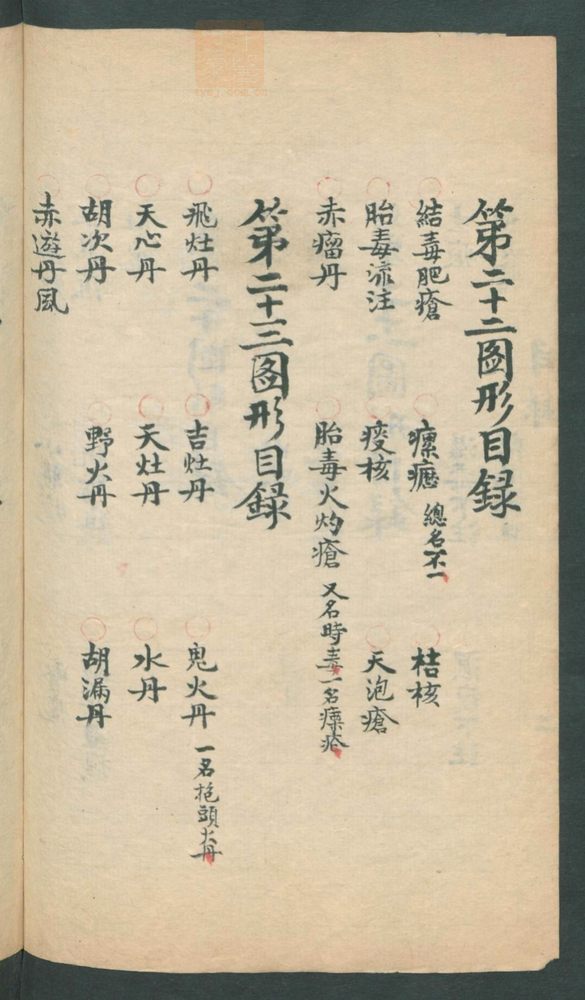 第二十二图形目録
結毒肥瘡 瘰癧 總名不一 桔核
胎毒流注 痰核 天泡瘡
赤瘤丹 胎毒火灼瘡 又名時毒一名瘭疮
第二十三图形目録
飛灶丹 吉灶丹 鬼火丹 一名抱頭火丹
天心丹 天灶丹 水丹
胡次丹 野火丹 胡漏丹
赤遊丹風